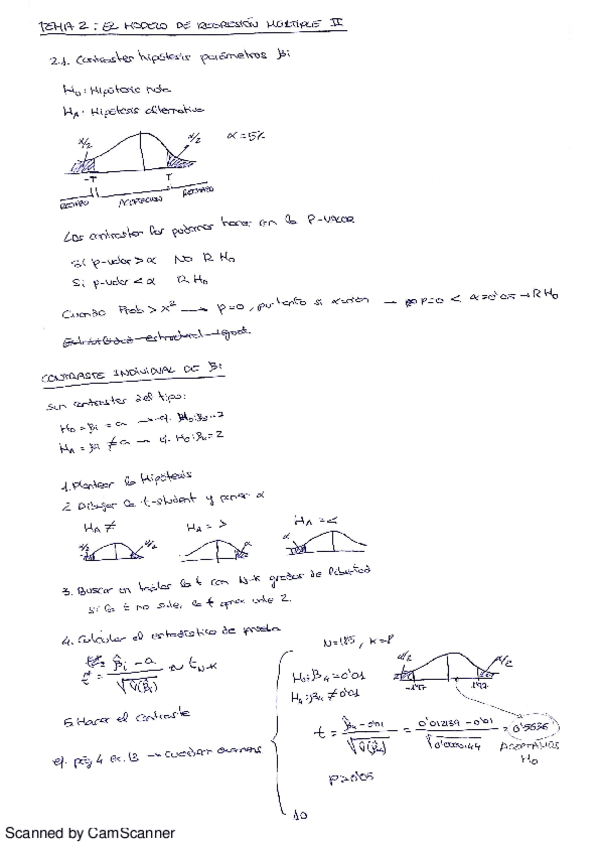 TEMA 2: EL MODELO DE REGRESIÓN MÚLTIPLE II
2.1. Contrastes hipótesis parámetros βi
H0: Hipótesis nula
HA: Hipótesis alternativa
α/2 α/2 α=5%
-T T
RECHAZO ACEPTACIÓN RECHAZO
Los contrastes los podemos hacer con la P-VALOR
Si p-valor > α NO R H0
Si p-valor < α R H0
Cuando Prob > X² → p=0, por tanto si → p=0 < α=0'05 → R H0
CONTRASTE INDIVIDUAL DE βi
Son contrastes del tipo:
H0 = βi = a → ej.
HA = βi ≠ a → ej.
1. Plantear la Hipótesis
2. Dibujar la t-student y poner α
HA ≠ HA = > HA = <
α/2 α/2 α α
3. Buscar en tablas la t con N-K grados de libertad
si la t no sale, la t aprox. vale 2.
4. Calcular el estadístico de prueba
t* = β̂i - a / √V̂(β̂i) ~ tN-K
5. Hacer el contraste
ej. pág 4 ec. 13 → cuaderno
N=185, K=8
H0: β4 = 0'01
HA: β4 ≠ 0'01
α/2 α/2
-1'97 1'97
ACEPTAMOS
H0